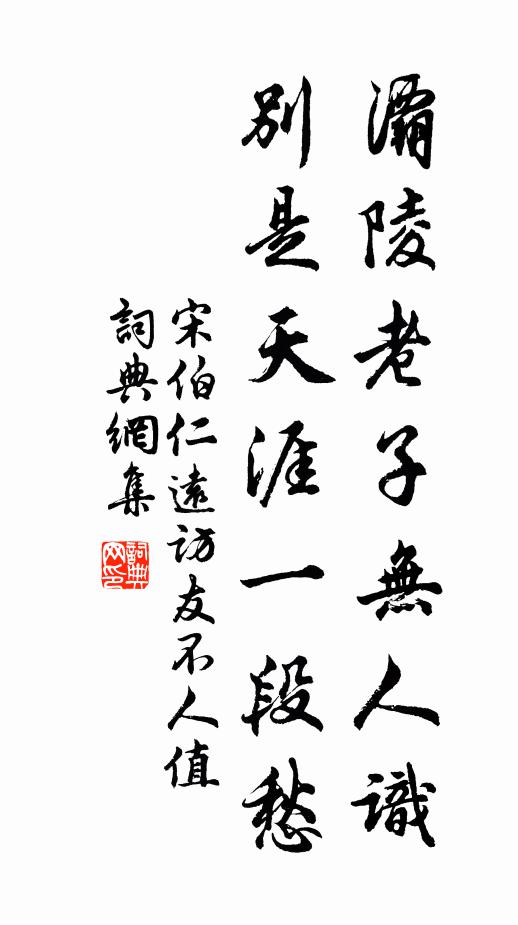 灞陵老子無人識
別是天涯一段愁
宋伯仁遠訪友不人值
詞典網集
詞典网印